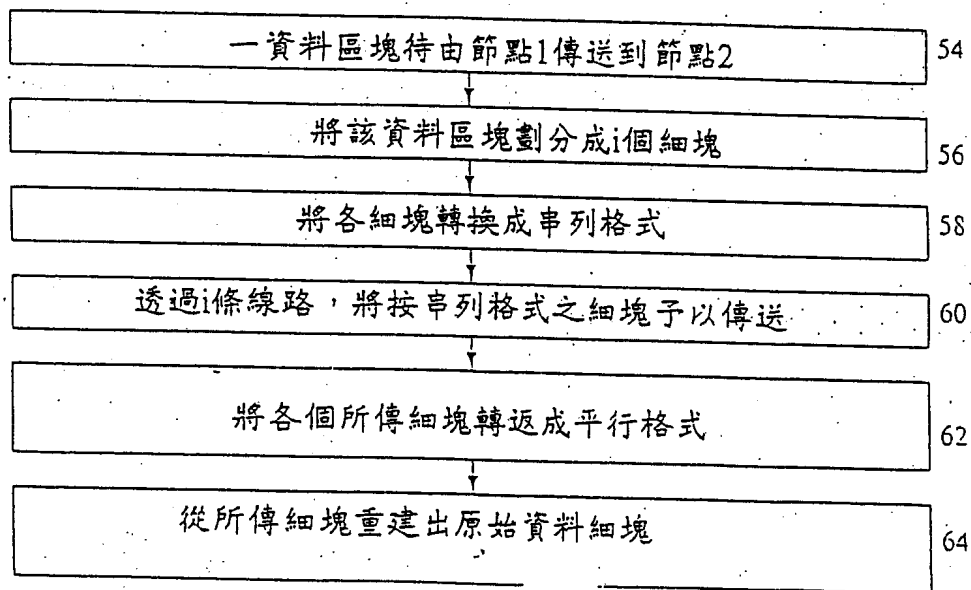 一資料區塊待由節點1傳送到節點2
54
將該資料區塊劃分成i個細塊
56
將各細塊轉換成串列格式
58
透過i條線路，將按串列格式之細塊予以傳送
60
將各個所傳細塊轉返成平行格式
62
從所傳細塊重建出原始資料細塊
64